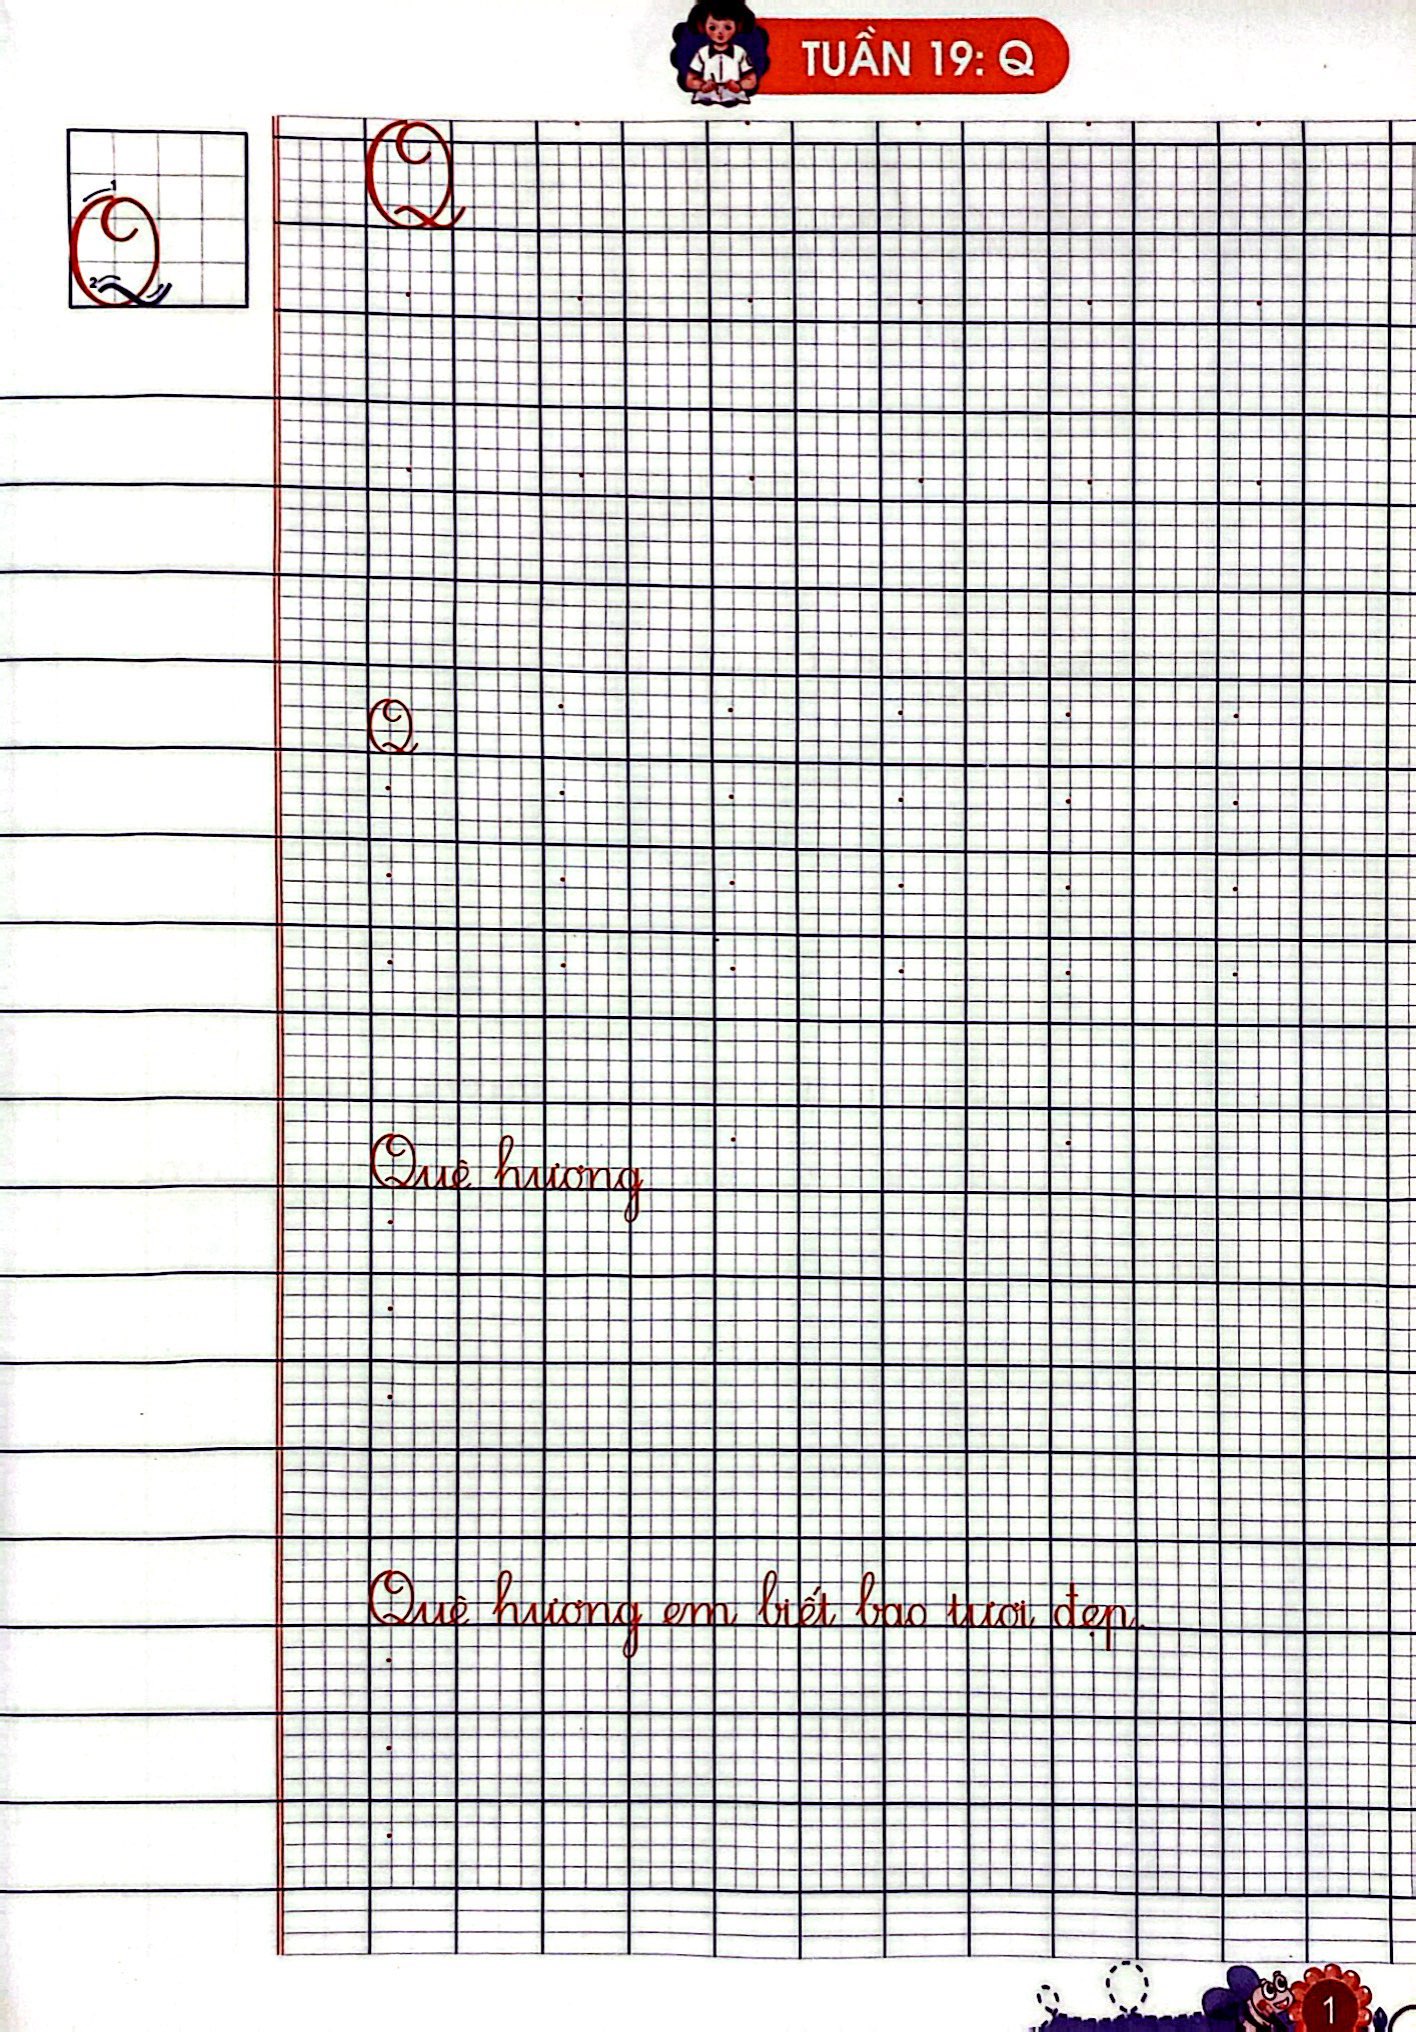 TUẦN 19: Q
Q
1
Q
2
Q
Quê hương
Quê hương em biết bao tươi đẹp.
1